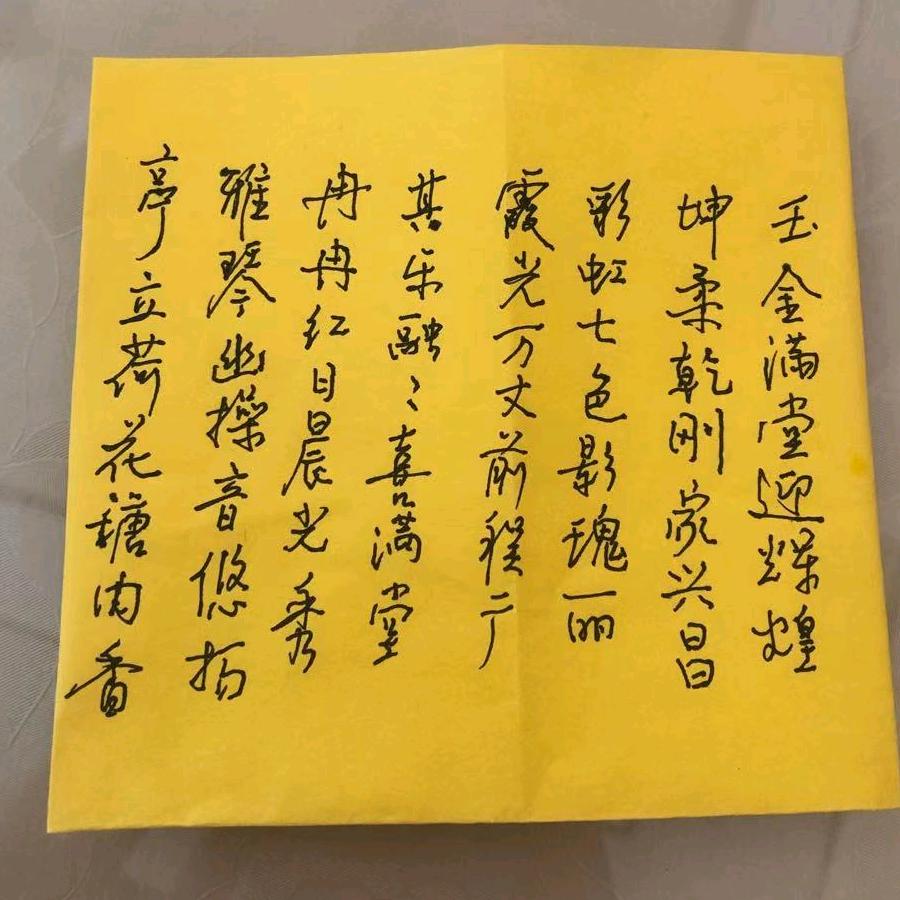 玉金满堂迎辉煌
坤柔乾刚家兴昌
彩虹七色影瑰丽
霞光万丈前程广
其乐融々喜满堂
冉冉红日晨光秀
雅琴幽操音悠扬
亭立荷花糖肉香